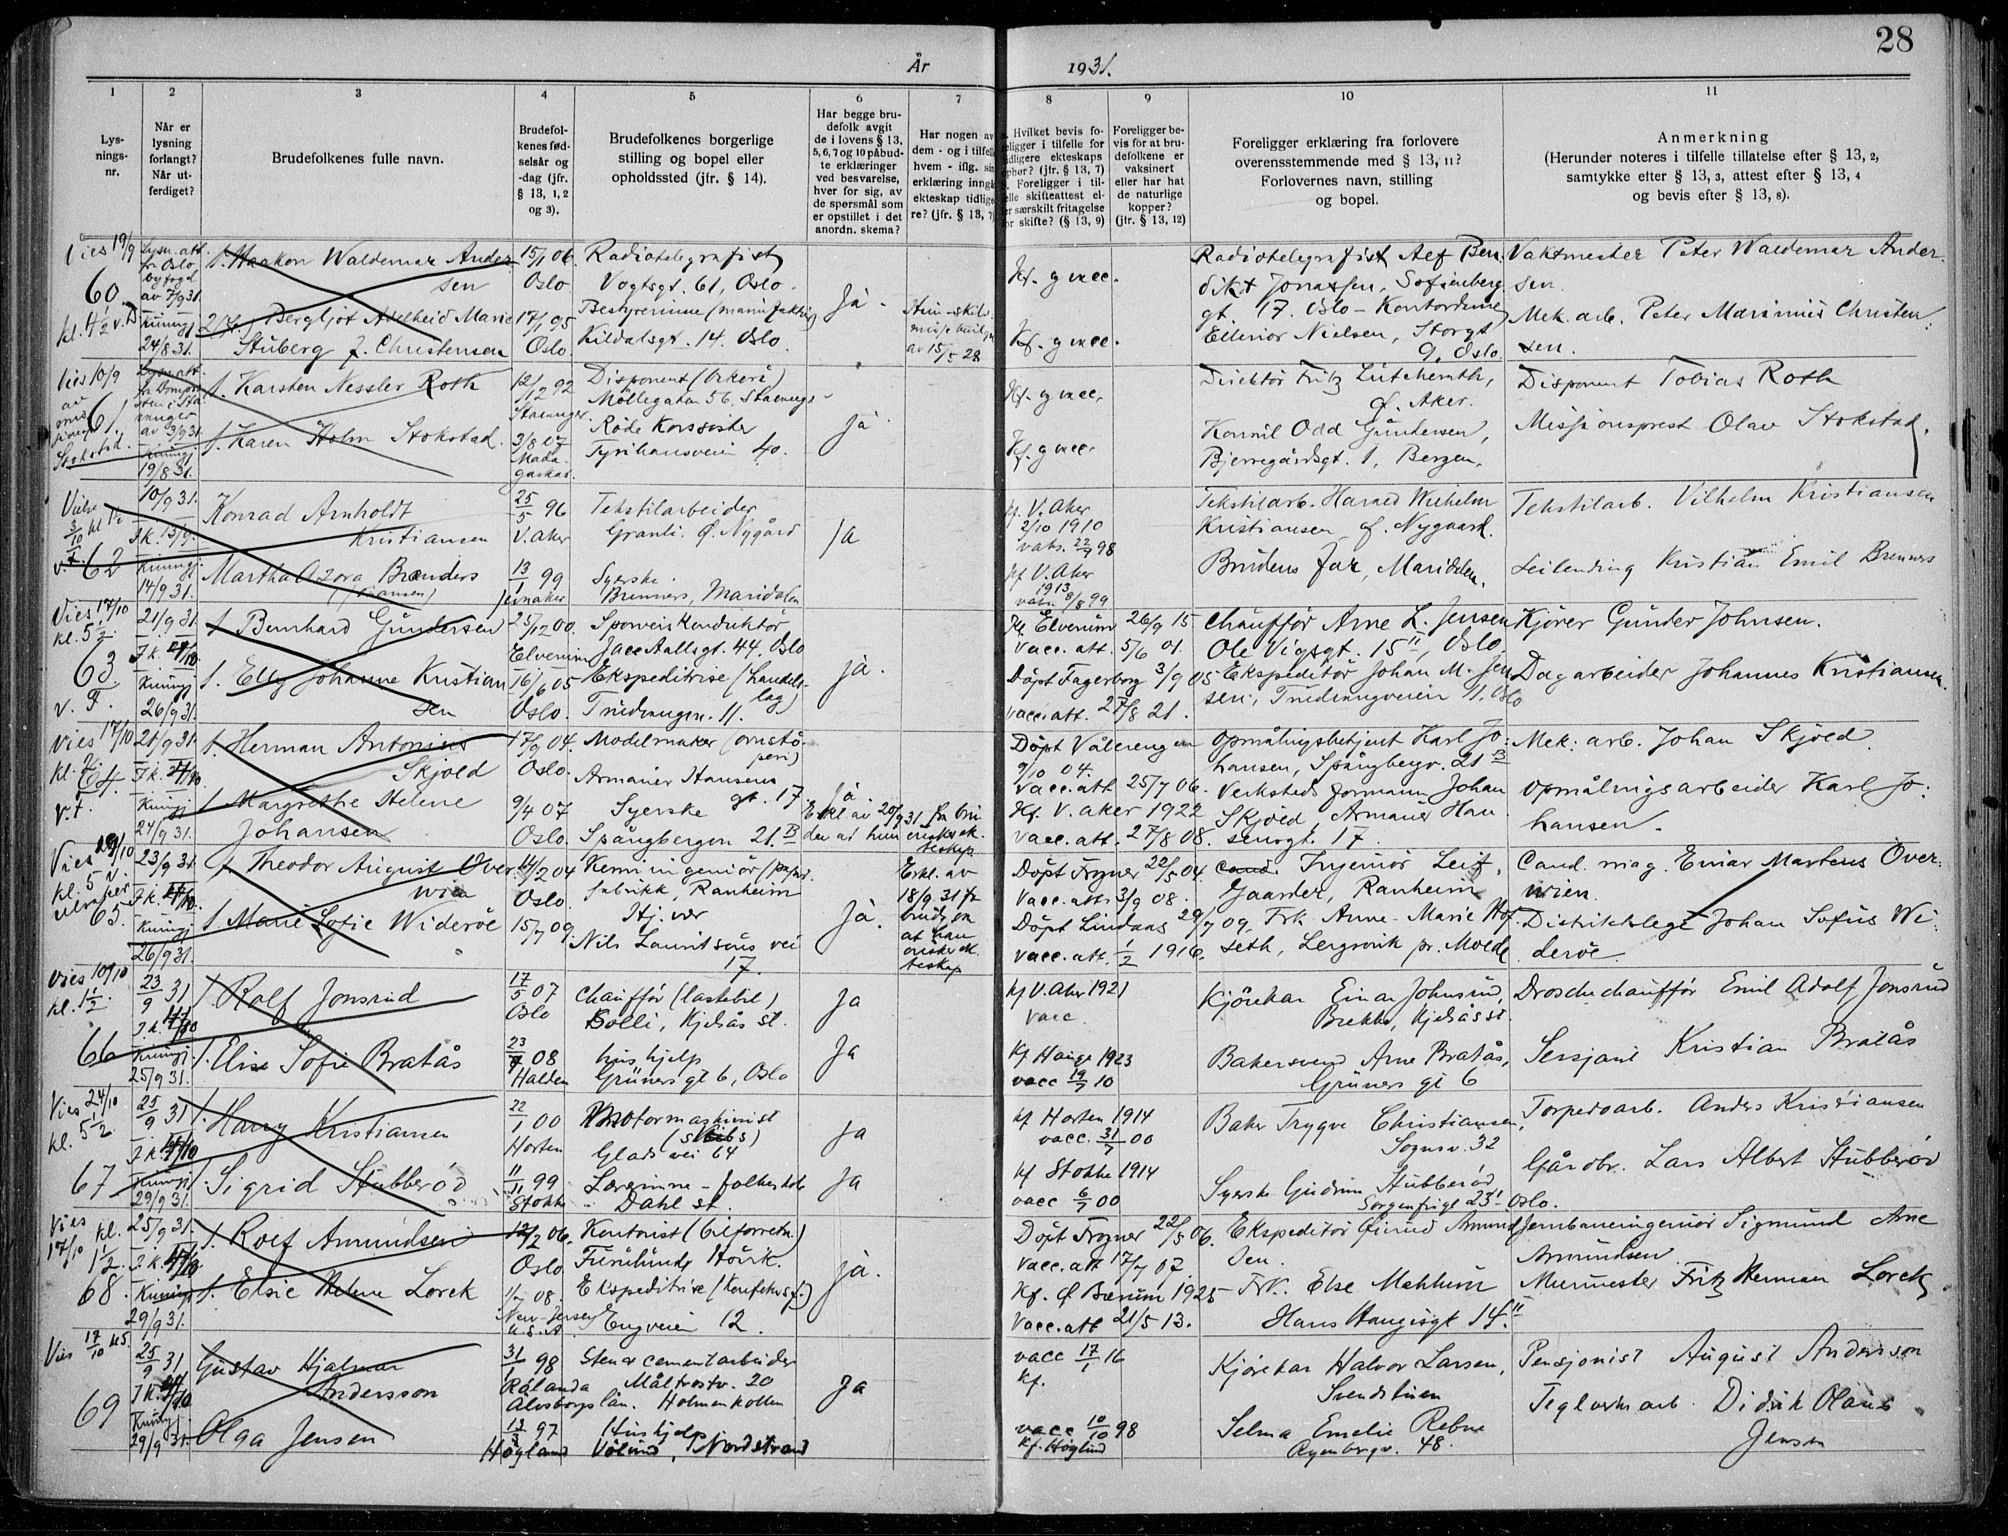 28
År 1931.
1 2 3 4 5 6 7 8 9 10 11
Lys-
nings-
nr.
Når er
lysning
forlangt?
Når ut-
ferdiget?
Brudefolkenes fulle navn.
Brudefol-
kenes fød-
selsår og
-dag (jfr.
§ 13, 1, 2
og 3).
Brudefolkenes borgerlige
stilling og bopel eller
opholdssted (jfr. § 14).
Har begge bru-
defolk avgit
de i lovens § 13,
5, 6, 7 og 10 påbud-
te erklæringer
ved besvarelse,
hver for sig, av
de spørsmål som
er opstillet i det
anordn. skema?
Har nogen av
dem - og i tilfelle
hvem - iflg. sin
erklæring inngå
ekteskap tidlige
re? (jfr. § 13, 7)
Hvilket bevis fo-
religger i tilfelle for
tidligere ekteskaps
ophør? (jfr. § 13, 7)
Foreligger i til-
felle skifteattest el-
ler særskilt fritagelse
for skifte? (§ 13, 9)
Foreligger be-
vis for at bru-
defolkene er
vaksinert
eller har hat
de naturlige
kopper?
(jfr. § 13, 12)
Foreligger erklæring fra forlovere
overensstemmende med § 13, 11?
Forlovernes navn, stilling
og bopel.
Anmerkning
(Herunder noteres i tilfelle tillatelse efter § 13, 2,
samtykke efter § 13, 3, attest efter § 13, 4
og bevis efter § 13, 8).
Vies 19/9
60.
kl. 4½ v. D
Lysn. att.
fra Oslo
byfogd
av 7/9 31.
24/8 31.
1. Haakon Waldemar Ander
sen
15/1 06.
Oslo
Radiotelegrafist
Vogtsgt. 61, Oslo.
Kf. g vacc.
Radiotelegrafist Alf Ben.
dikt Jonassen, Sofienberg
gt. 17. Oslo - Kontordame
Ellinor Nielsen, Storgt
9, Oslo.
Vaktmester Peter Waldemar Ander.
sen.
Bergljot Adelheid Marie
Stuberg f. Christensen
17/1 95
Oslo.
Bestyrerinne (manufaktur)
Kildalsgt. 14. Oslo.
Ja.
av 15/5 28
Kf. g vacc.
Mek. arb. Peter Marinius Christen:
sen.
Vies 10/9
61.
Stokstad.
av 3/9 31.
19/8 31.
1. Karsten Nessler Roth
12/12 92
Stavanger
Disponent (Orkern)
Møllegaten 56, Stavanger
Ja.
Kf. g vacc.
Direktør Fritz Lütcherath,
Ø. Aker.
Disponent Tobias Roth
1. Karen Holm Stokstad.
3/8 07
Mada
gaskar.
Røde Korssøster
Tyrihansveien 40.
Kf. g vacc.
Konsul Odd Gundersen,
Bjerregårdsgt. 1, Bergen.
Misjonsprest Olav Stokstad.
62
10/9 31.
Fk. 13/9.
14/9 31.
Konrad Arnholdt
Kristiansen
25/5 96
V. Aker
Tekstilarbeider
Granli. Ø. Nygård
Ja
Kf. V. Aker
2/10 1910
vaks. 22/7 98
Tekstilarb. Harald Wilhelm
Kristiansen, Ø. Nygaard.
Tekstilarb. Vilhelm Kristiansen
Martha Azora Brenders
13/1 99
Syerske.
Brenners, Maridalen
Kf V. Aker
1913
vaks. 8/8 99
Brudens far, Maridalen.
Leilending Kristian Emil Brenners
Vies 17/10
kl. 5½.
63.
v. F.
21/9 31.
26/9 31.
1. Bernhard Gundersen
25/12 00.
Elverum
Sporveiskonduktør
Jac Aallsgt. 44. Oslo
ja.
Kf. Elverum 26/9 15
Vacc. att. 5/6 01.
Chauffør Arne L. Jensen
Ole Vigsgt. 15 II, Oslo.
Kjører Gunder Johnsen.
1. Elly Johanne Kristian
sen
16/6 05
Oslo.
Ekspeditrise (handels-
lag)
Trudvangvn. 11.
Døpt Fagerborg 3/9 05
Vacc. att. 27/8 21.
Ekspeditør Johan M. Jen
sen, Trudvangveien 11, Oslo
Dagarbeider Johannes Kristiansen.
Vies 17/10
kl. 2
64.
v. F.
21/9 31.
24/9 31.
1. Herman Antonius
Skjold
17/9 04.
Oslo.
Modelmaker (ovnstø-
peri)
Armauer Hansens
gt. 17.
Ja
Døpt Vålerengen
9/10 04.
Vacc. att 25/7 06.
Opmålingsbetjent Karl Jo:
hansen, Spångbergv. 21 B
Mek. arb. Johan Skjold.
1 Margrethe Helene
Johansen
9/4 07
Oslo.
Syerske
Spångbergvn 21. B
Kf. V. Aker 1922
Vacc. att. 27/8 08.
Verksteds formann Johan
Skjold Armauer Han
sensgt. 17.
Opmålingsarbeider Karl Jo:
hansen.
kl. 5
65.
23/9 31.
26/9 31.
1. Theodor August Over
wien
14/2 04
Oslo.
Kemi ingeniør (papir
fabrikk, Ranheim
Ja.
Erkl. av
18/9 31 fra
Døpt Frogner 22/5 04.
Vacc. att. 3/9 08.
Ingeniør Leif
Gaarder, Ranheim
Cand. mag. Einar Martens Over:
wien.
1 Marie Sofie Widerøe
15/7 09
Hj. vær
Nils Lauritsøns vei
17.
Døpt Lindaas 29/7 09.
Vacc. att. 1/2 1916.
Frk Anne-Marie Hof
seth, Lergrovik pr. Molde.
Distriktslege Johan Sofus Wi:
derøe.
Vies 10/10
kl. 1½.
66
23/9 31
25/9 31.
1. Rolf Jonsrud
17/5 07
Oslo
Chauffør (lastebil)
Solli, Kjelsås st.
Ja
Kf V. Aker 1921
vacc
Kjørekar Einar Johnsrud,
Brekke, Kjelsås st.
Droschechauffør Emil Adolf Jonsrud
1. Else Sofie Bratås
08
Halden
hushjelp
Grüners gt 6, Oslo
Ja
Kf Hauge 1923
vacc 19/7 10
Bakersvend Arne Bratås,
Grüners gt 6
Sersjant Kristian Bratås
Vies 24/10
kl. 5½
67
25/9 31
29/9 31.
1. Harry Kristiansen
22/1 00
Horten
Motormaskinist
(skibs)
Glads vei 64
Ja
Kf Horten 1914
vacc. 31/7 00
Baker Trygve Christiansen,
Sognsv. 32
Torpedoarb. Anders Kristiansen
1. Sigrid Stubberød
11/11 99
Stokke
Lærerinne - folkeskole
Dahl st.
Ja
Kf Stokke 1914
vacc 6/7 00
Syerske Gudrun Stubberød
Sorgenfrigt 23 I Oslo.
Gårdbr. Lars Albert Stubberød
Vies kl.
17/10 1½
68.
25/9 31.
29/9 31.
1. Rolf Amundsen
12/2 06.
Oslo
Kontorist (bilforretn.)
Furulund, Høvik.
ja.
Døpt Frogner 22/5 06.
Vacc. att 17/7 07.
Ekspeditør Øivind Amund
sen.
Jernbaneingeniør Sigmund Arne
Amundsen
1. Elsie Helene Lorck
08.
New-Jersey
U.S.A.
Ekspeditrise
Engveien 12.
Kf. Ø Bærum 1925
Vacc. att 21/5 13.
Frk. Else Mahlum
Hans Haugisgt 14. II
Murmester Fritz Herman Lorck
Vies 17/10
69
25/9 31
29/9 31.
Gustav Hjalmar
Andersson
31/1 98
Rålanda
Älvsborgs län.
Sten og cementarbeider
Måltrostv. 20
Holmenkollen
Ja
vacc 17/1 16
Kf.
Kjørekar Halvor Larsen,
Svendstuen
Pensjonist August Andersson
Olga Jensen
13/3 97
Høgland
Hushjelp
Vølund, Nordstrand
vacc 10/10 98
Kf. Høglund
Selma Emelie Rebne
Ryenbergv. 48.
Teglverksarb Didrik Olaus
Jensen